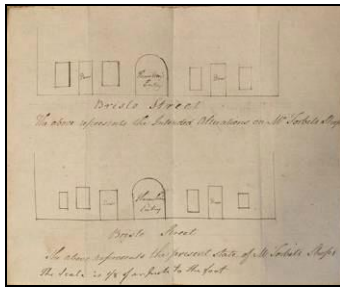 Door
Hamilton's
Entry
Door
Bristo Street
The above represents the Intended Alterations on Mr Torbets Shops
Door
Hamilton's
Entry
Door
Bristo Street
The above represents the present State of Mr Torbets Shops
the Scale is 1/8 of an Inch to the foot